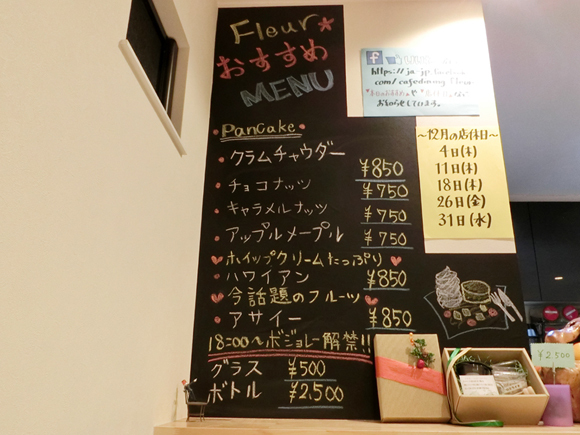 Fleur
おすすめ
MENU
Pancake
・クラムチャウダー ¥850
・チョコナッツ ¥750
・キャラメルナッツ ¥750
・アップルメープル ¥750
ホイップクリームたっぷり
・ハワイアン ¥850
今話題のフルーツ
・アサイー ¥850
18:00〜ボジョレー解禁!!
グラス ¥500
ボトル ¥2,500
https://ja-jp.
com/
お知らせしています。
〜12月の店休日〜
4日(木)
11日(木)
18日(木)
26日(金)
31日(水)
¥2,500